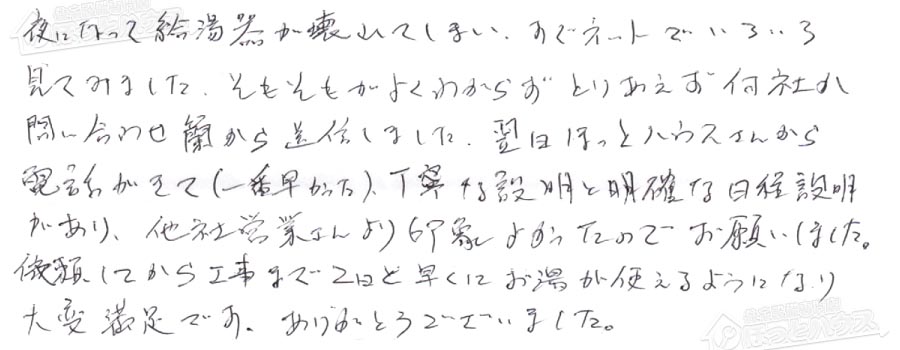 夜になって給湯器が壊れてしまい、すぐネットでいろいろ
見てみました。そもそもがよくわからずとりあえず何社か
問い合わせ蘭から送信しました。翌日ほっとハウスさんから
電話がきて(一番早かった)、丁寧な説明と明確な日程説明
があり、他社営業さんより印象よかったのでお願いしました。
依頼してから工事まで2日と早くにお湯が使えるようになり
大変満足です。ありがとうございました。
ほっとハウス